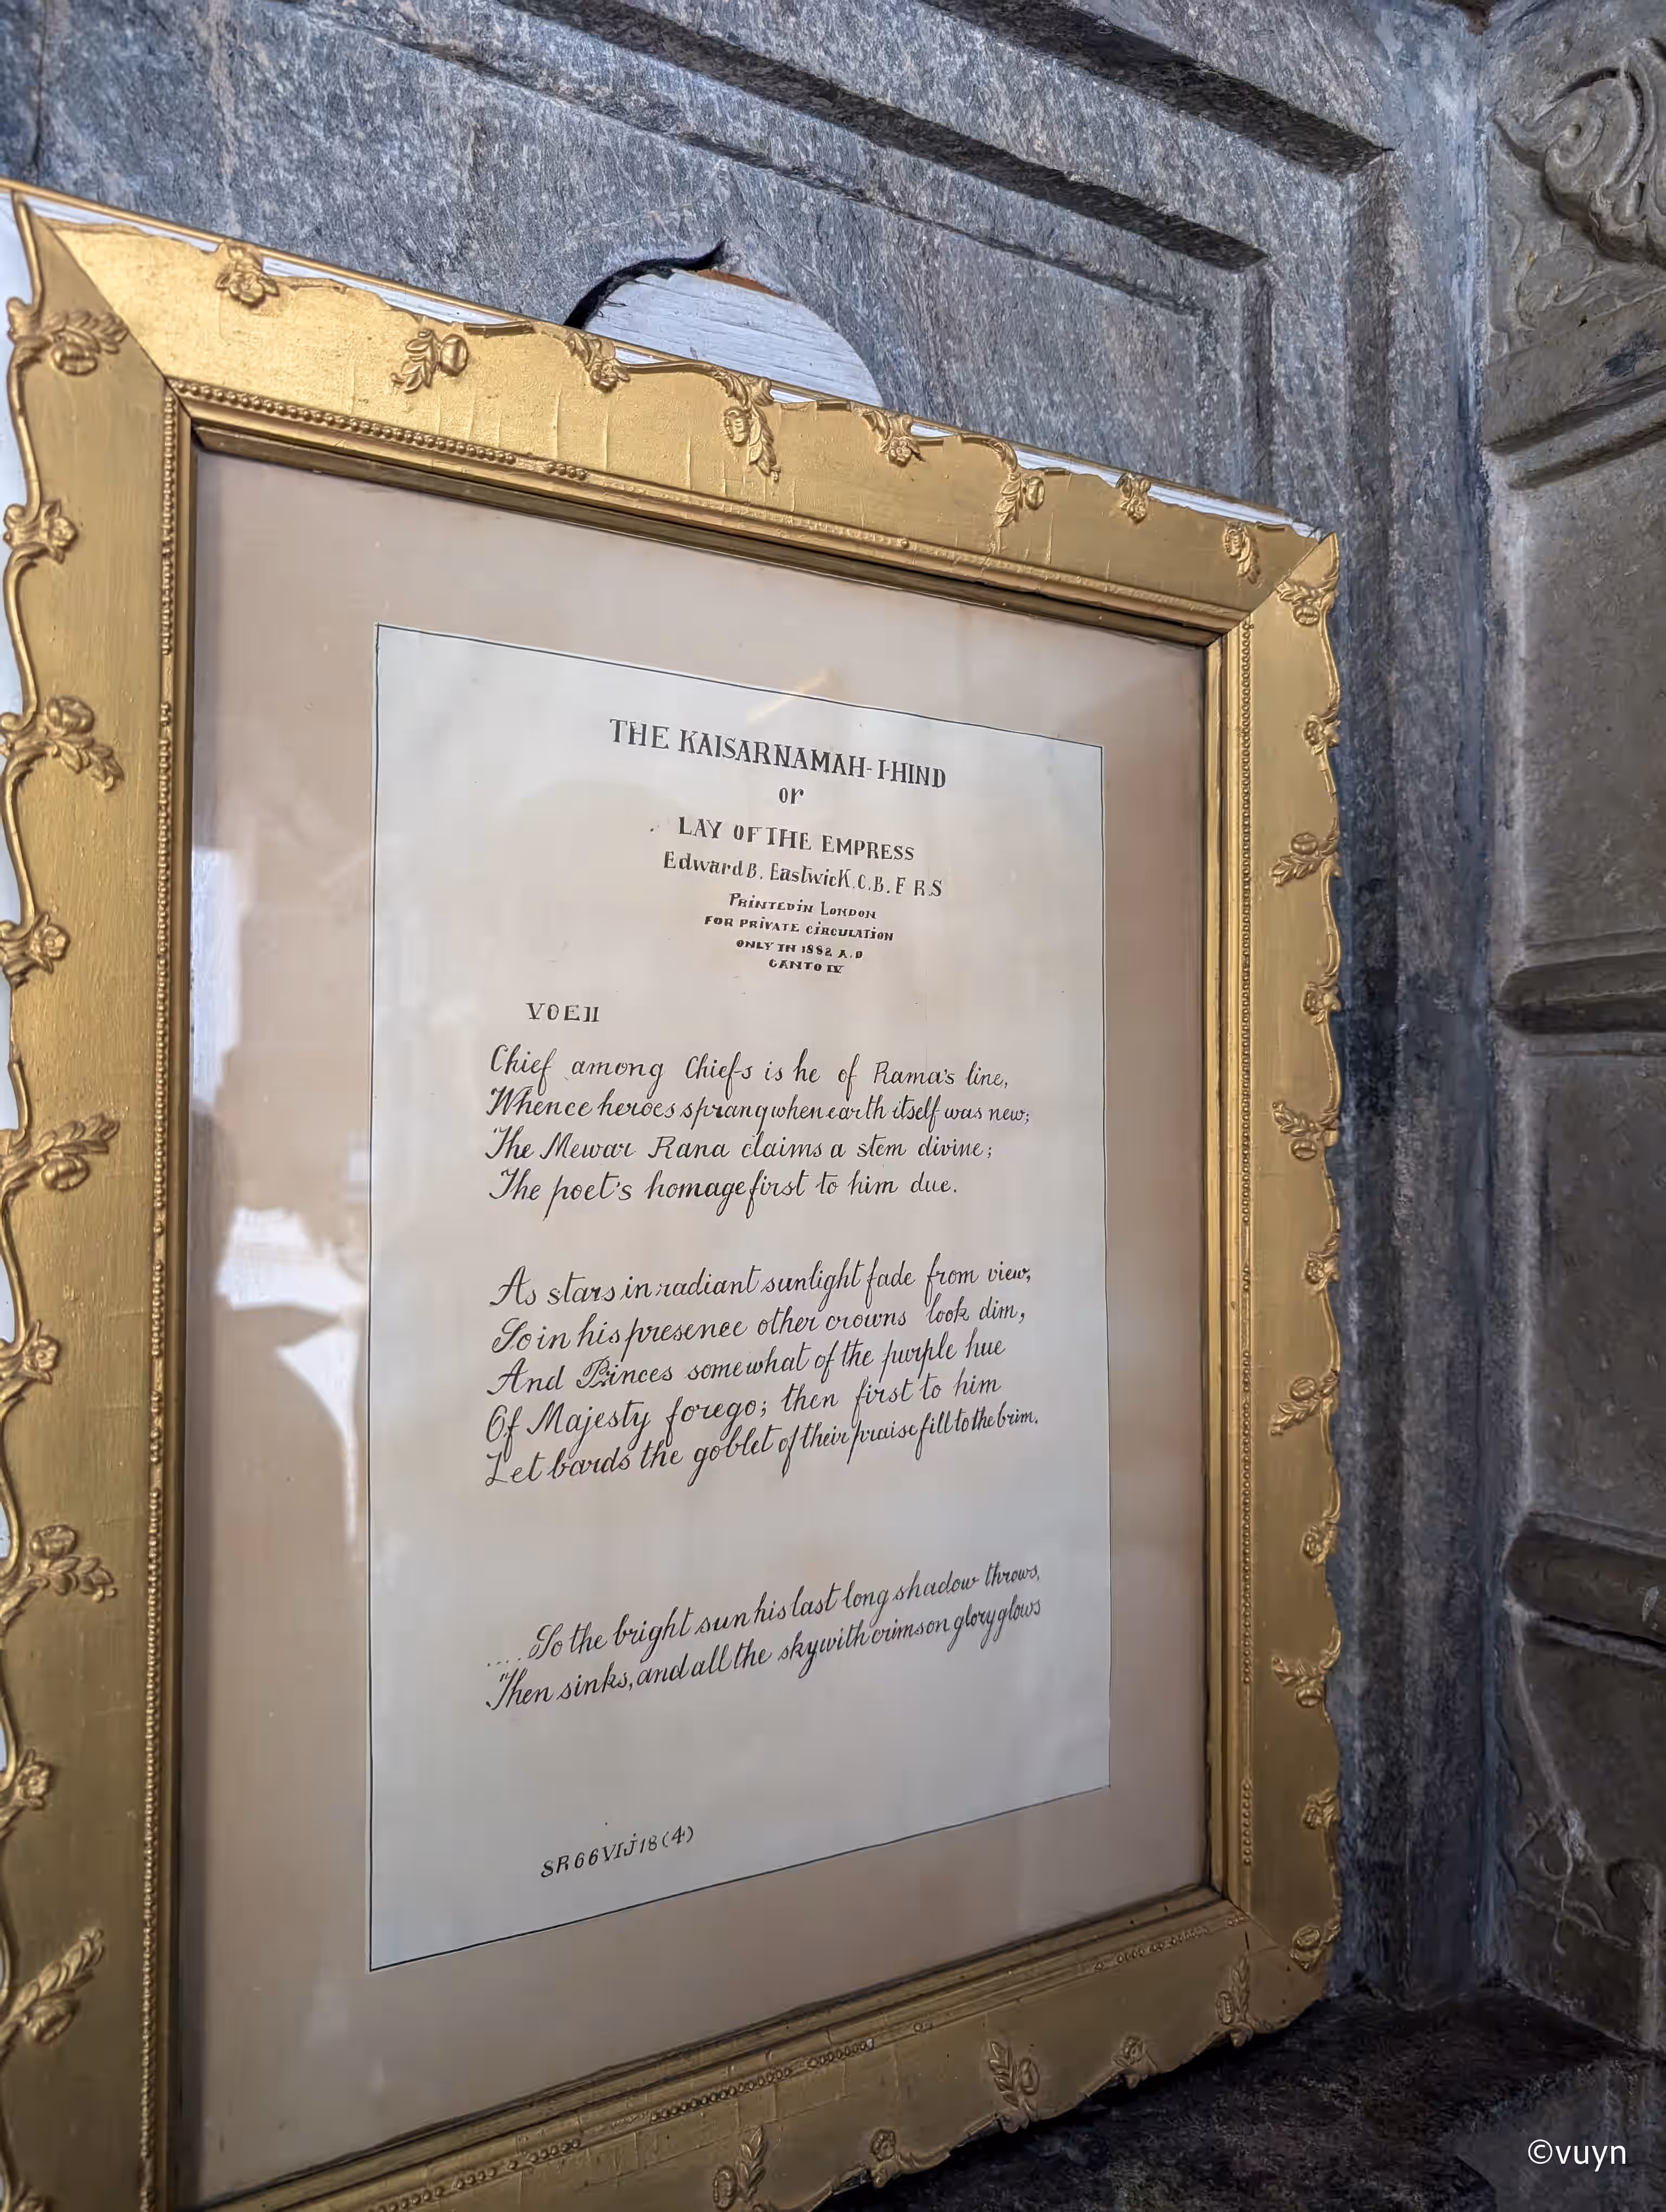 THE KAISARNAMAH-I-HIND
or
LAY OF THE EMPRESS
Edward B. Eastwick. C. B. F R.S
PRINTED IN LONDON
FOR PRIVATE CIRCULATION
ONLY IN 1882 A.D
CANTO IV
VOEII
Chief among Chiefs is he of Rama's line,
Whence heroes sprang when earth itself was new;
The Mewar Rana claims a stem divine;
The poet's homage first to him due.
As stars in radiant sunlight fade from view,
So in his presence other crowns look dim,
And Princes somewhat of the purple hue
Of Majesty forego; then first to him
Let bards the goblet of their praise fill to the brim.
.... So the bright sun his last long shadow throws,
Then sinks, and all the sky with crimson glory glows
SR66VIJ18(4)
©vuyn